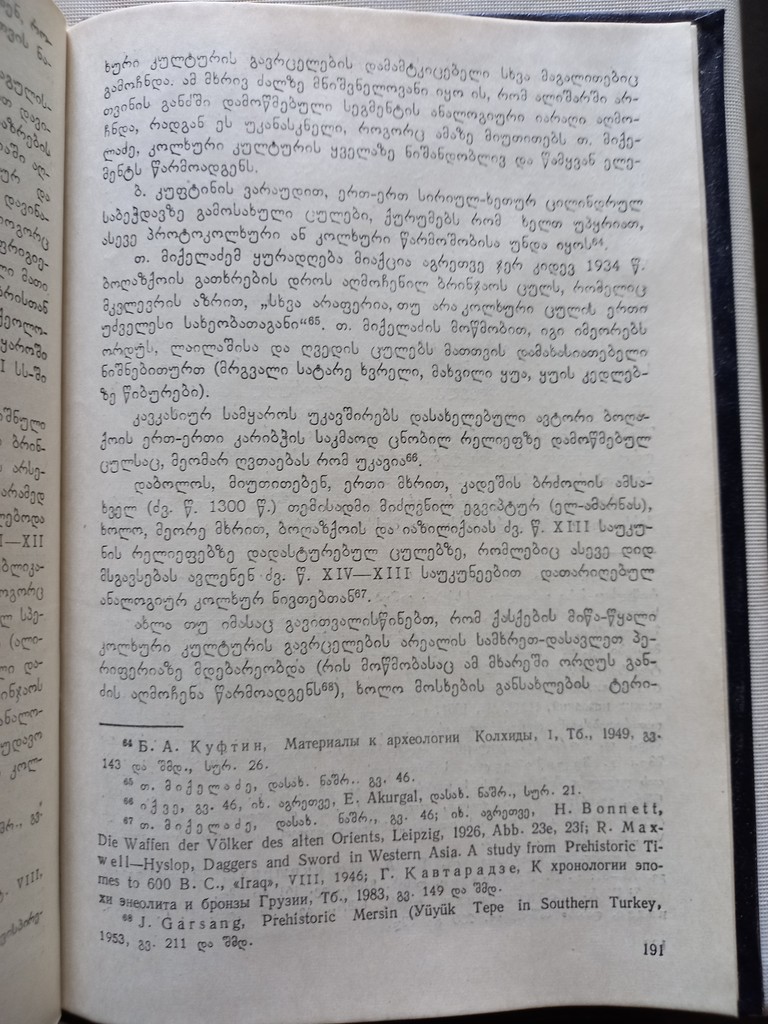 ხური კულტურის გავრცელების დამამტკიცებელი სხვა მაგალითებიც
გამოჩნდა. ამ მხრივ ძალზე მნიშვნელოვანი იყო ის, რომ ალიშარში არ-
თვინის განძში დამოწმებული სეგმენტის ანალოგიური იარაღი აღმო-
ჩნდა, რადგან ეს უკანასკნელი, როგორც ამაზე მიუთითებს თ. მიქე-
ლაძე, კოლხური კულტურის ყველაზე ნიშანდობლივ და წამყვან ელე-
მენტს წარმოადგენს.
ბ. კუფტინის ვარაუდით, ერთ-ერთ სირიულ-ხეთურ ცილინდრულ
საბეჭდავზე გამოსახული ცულები, ქურუმებს რომ ხელთ უპყრიათ,
ასევე პროტოკოლხური ან კოლხური წარმოშობისა უნდა იყოს⁶⁴.
თ. მიქელაძემ ყურადღება მიაქცია აგრეთვე ჯერ კიდევ 1934 წ.
ბოღაზქოის გათხრების დროს აღმოჩენილ ბრინჯაოს ცულს, რომელიც
მკვლევრის აზრით, „სხვა არაფერია, თუ არა კოლხური ცულის ერთი
უძველესი სახეობათაგანი“⁶⁵. თ. მიქელაძის მოწმობით, იგი იმეორებს
ორდუს, ლაილაშისა და ღვედის ცულებს მათთვის დამახასიათებელი
ნიშნებითურთ (მრგვალი სატარე ხვრელი, მახვილი ყუა, ყუის კედლებ-
ზე წიბურები).
კავკასიურ სამყაროს უკავშირებს დასახელებული ავტორი ბოღა-
ქოის ერთ-ერთი კარიბჭის საკმაოდ ცნობილ რელიეფზე დამოწმებულ
ცულსაც, მეომარ ღვთაებას რომ უკავია⁶⁶.
დაბოლოს, მიუთითებენ, ერთი მხრით, კადეშის ბრძოლის ამსა-
ხველ (ძვ. წ. 1300 წ.) თემისადმი მიძღვნილ ეგვიპტურ (ელ-ამარნას),
ხოლო, მეორე მხრით, ბოღაზქოის და იაზილიქაიას ძვ. წ. XIII საუკუ-
ნის რელიეფებზე დადასტურებულ ცულებზე, რომლებიც ასევე დიდ
მსგავსებას ავლენენ ძვ. წ. XIV—XIII საუკუნეებით დათარიღებულ
ანალოგიურ კოლხურ ნივთებთან⁶⁷.
ახლა თუ იმასაც გავითვალისწინებთ, რომ ქასქების მიწა-წყალი
კოლხური კულტურის გავრცელების არეალის სამხრეთ-დასავლეთ პე-
რიფერიაზე მდებარეობდა (რის მოწმობასაც ამ მხარეში ორდუს გან-
ძის აღმოჩენა წარმოადგენს⁶⁸), ხოლო მოსხების განსახლების ტერი-
⁶⁴ Б. А. Куфтин, Материалы к археологии Колхиды, I, Тб., 1949, გვ.
143 და შმდ., სურ. 26.
⁶⁵ თ. მიქელაძე, დასახ. ნაშრ., გვ. 46.
⁶⁶ იქვე, გვ. 46, იხ. აგრეთვე, E. Akurgal, დასახ. ნაშრ., სურ. 21.
⁶⁷ თ. მიქელაძე, დასახ. ნაშრ., გვ. 46; იხ. აგრეთვე, H. Bonnett,
Die Waffen der Völker des alten Orients, Leipzig, 1926, Abb. 23e, 23f; R. Max-
well—Hyslop, Daggers and Sword in Western Asia. A study from Prehistoric Ti-
mes to 600 B. C., «Iraq», VIII, 1946; Г. Кавтарадзе, К хронологии эпо-
хи энеолита и бронзы Грузии, Тб., 1983, გვ. 149 და შმდ.
⁶⁸ J. Garsang, Prehistoric Mersin (Уüyük Tepe in Southern Turkey,
1953, გვ. 211 და შმდ.
191